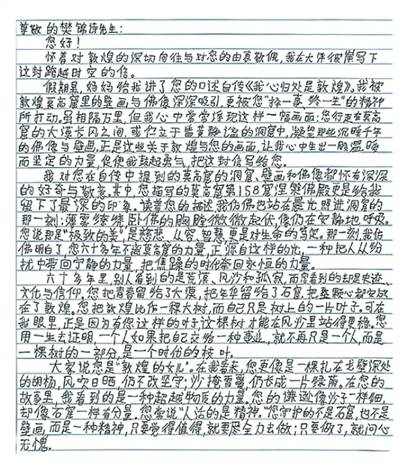 尊敬的樊锦诗先生:
您好!
怀着对敦煌的深切向往与对您的由衷敬佩,我在大洋彼岸写下
这封跨越时空的信。
假期里,妈妈给我讲了您的口述自传《我心归处是敦煌》。我被
敦煌莫高窟里的壁画与佛像深深吸引,更被您“择一事,终一生”的精神
所打动。虽相隔万里,但我心中常常浮现这样一幅画面:您行走在莫高
窟的大漠长风之间,或伫立于幽静的洞窟中,凝望那些沉睡千年
的佛像与壁画。正是这些关于敦煌与您的画面,让我心中生出一股温暖
而坚定的力量,促使我鼓起勇气,把这封信写给您。
我对您在自传中提到的莫高窟的洞窟、壁画和佛像都怀有深深
的好奇与敬意。其中,您描写的莫高窟第158窟涅槃佛殿更是给我
留下了最深的印象。读着您的描述,我仿佛也站在晨光照进洞窟的
那一刻:薄雾缭绕,卧佛的胸膛微微起伏,像仍在安静地呼吸。
您说那是“极致的美”,是慈悲、从容、智慧,更是对生命的驾驭。那一刻,我仿
佛明白了您六十多年不离莫高窟的力量,正源自这样的光,一种把人从纷
扰中带回宁静的力量,把焦躁的时代带回永恒的力量。
六十多年里,别人看到的是荒凉、风沙和孤寂,而您看到的却是史迹、
文化与信仰。您把青春留给了大漠,把年华留给了石窟,把整颗心都安放
在了敦煌。您把敦煌比作一棵大树,而自己只是树上的一片叶子。可在
我眼里,正是因为有您这样的叶子,这棵树才能在风沙里站得更稳。您
用一生去证明,一个人如果把自己交给一种事业,就不再只是一个人,而是
一棵树的一部分,是一个时代的枝叶。
大家说您是“敦煌的女儿”。在我看来,您更像是一棵扎在戈壁深处
的胡杨,风吹日晒,仍不改坚守;沙掩霜盖,仍长成一片绿荫。在您的
故事里,我看到的是一种超越物质的力量。您的谦逊像沙子一样细,
却像石窟一样有分量。您常说“人活的是精神”。您守护的不是石窟,也不是
壁画,而是一种精神,只要觉得值得,就要尽全力去做;只要做了,就问心
无愧。